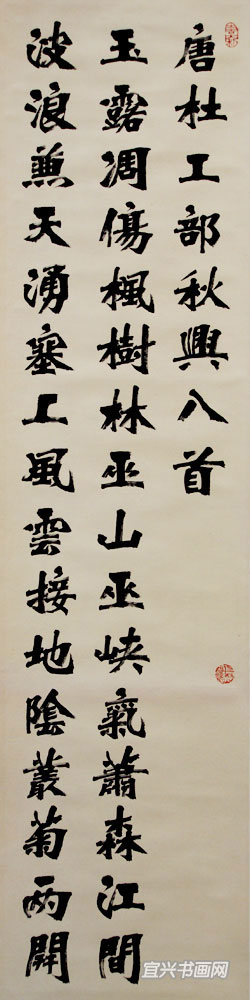 唐杜工部秋興八首
玉露凋傷楓樹林巫山巫峽氣蕭森江間
波浪兼天湧塞上風雲接地陰叢菊兩開
宜兴书画网